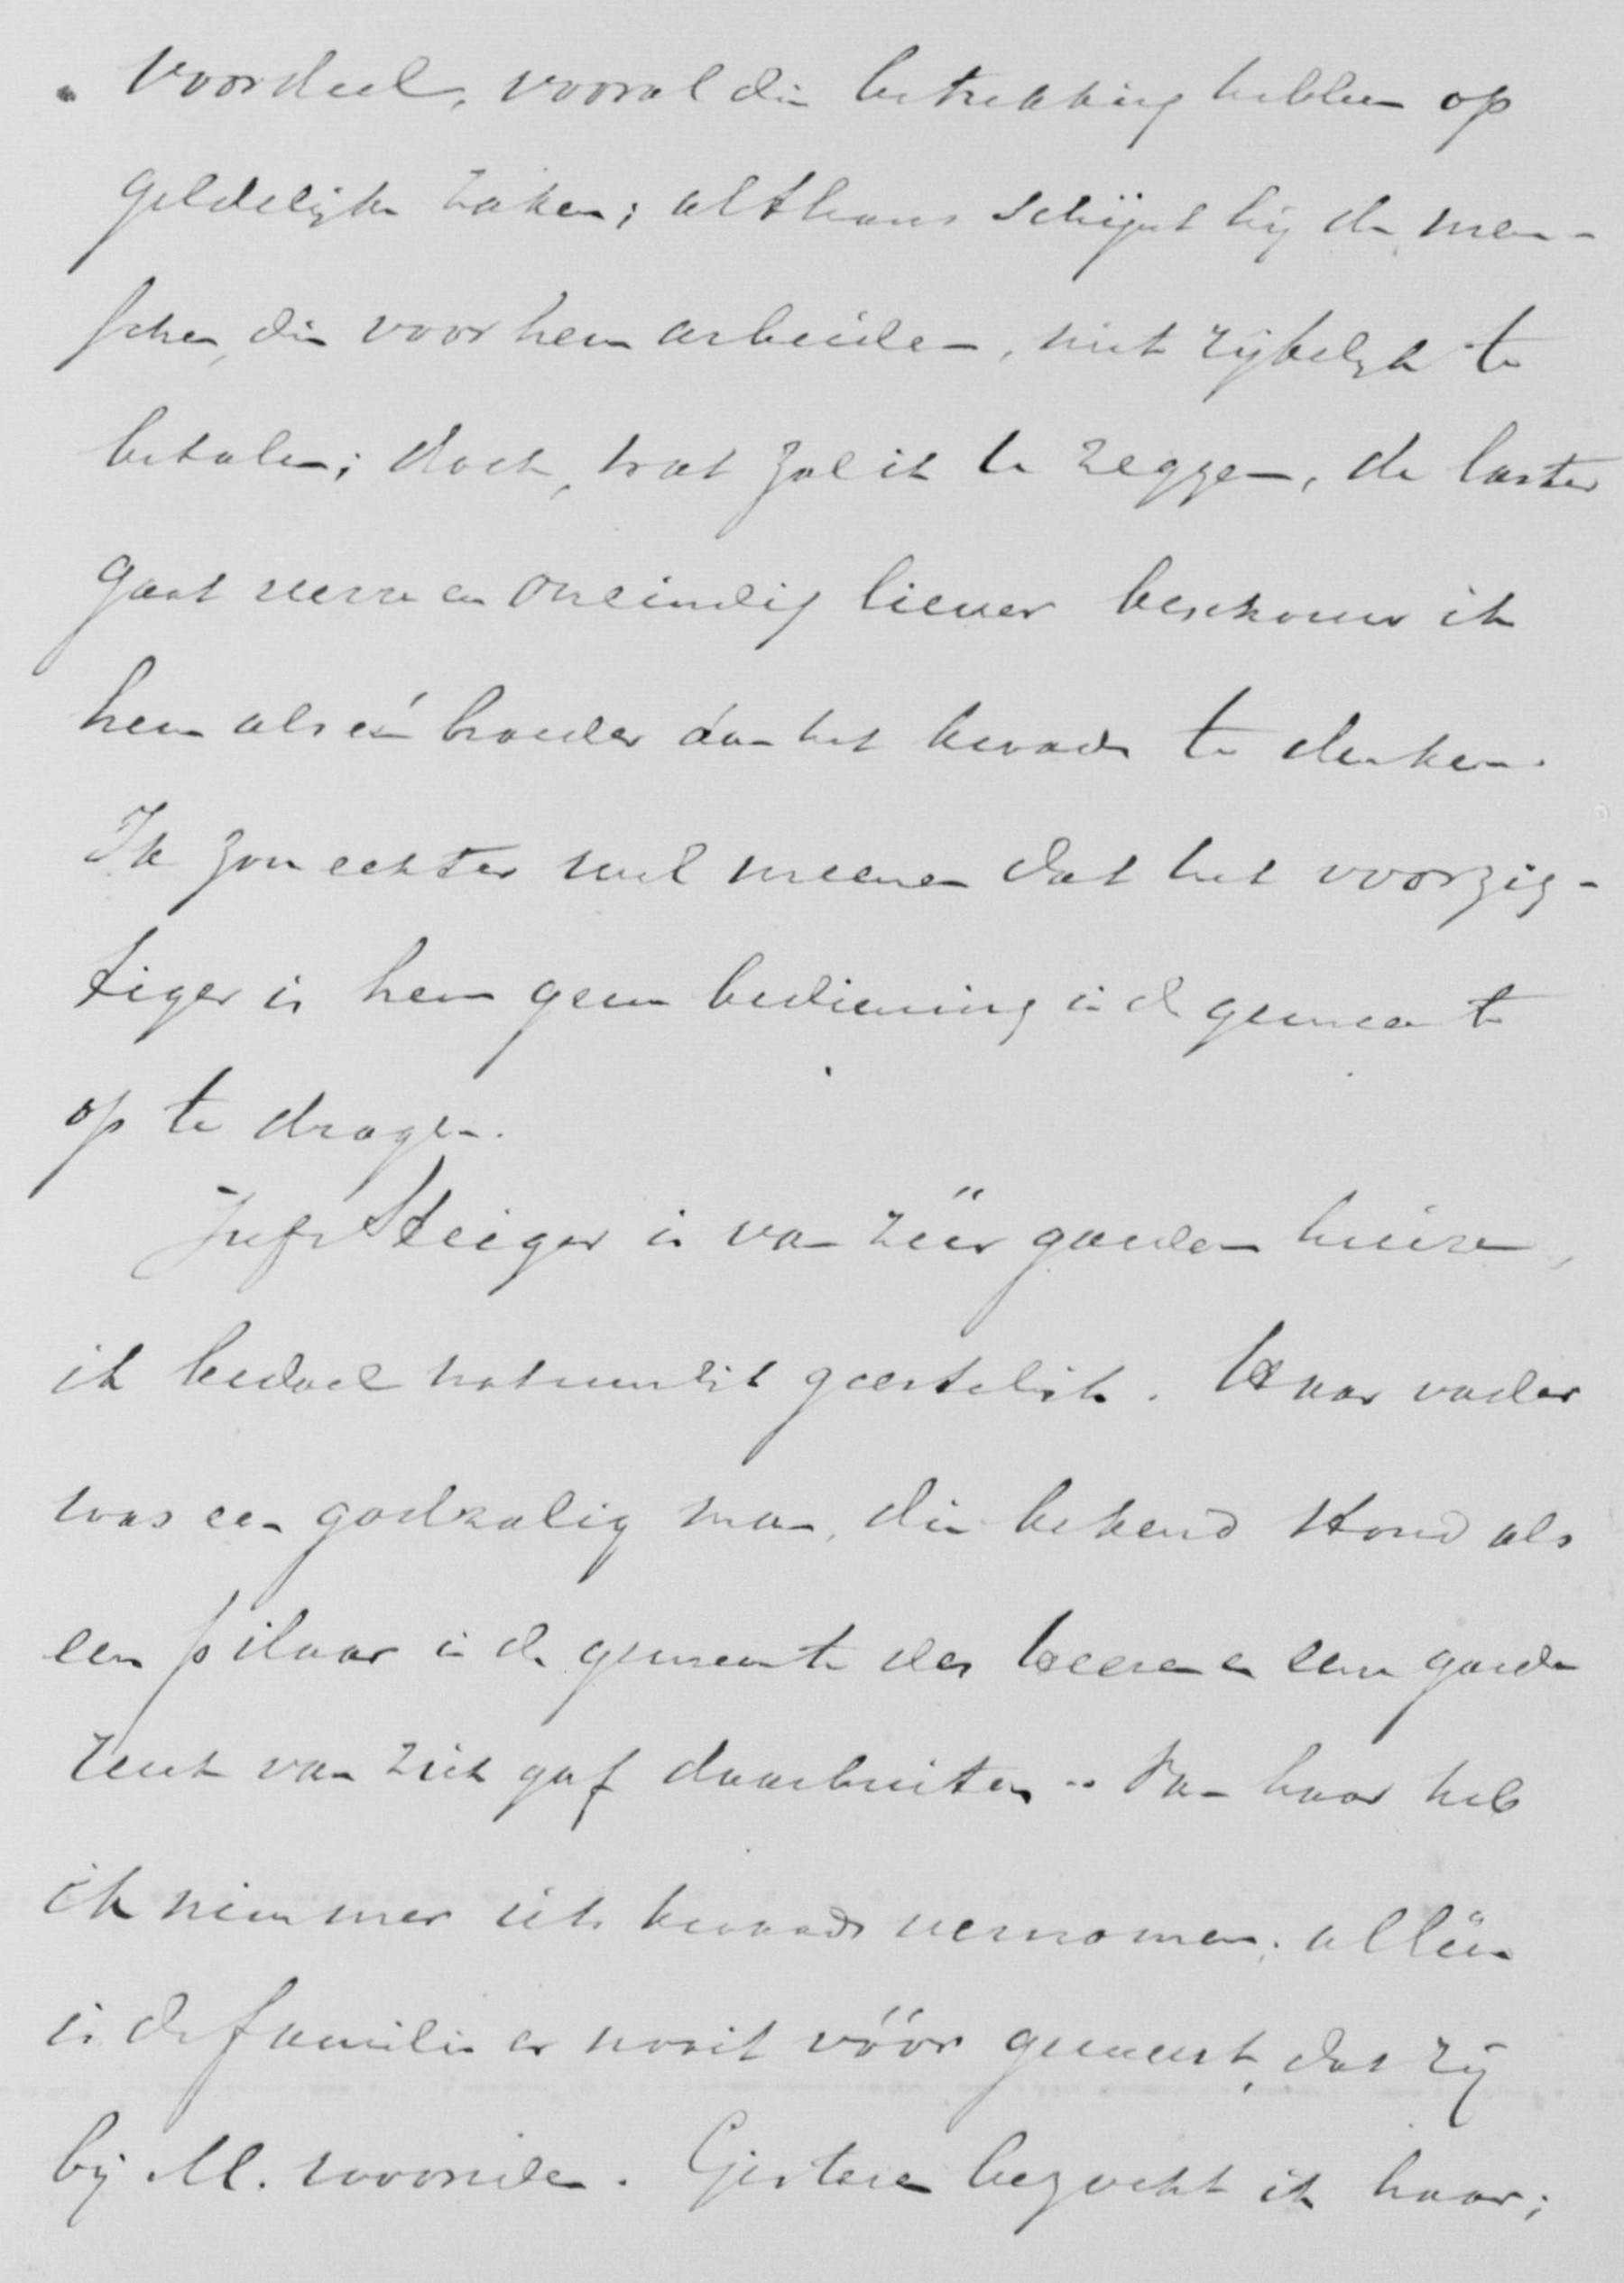 voordeel, vooral die betrekking hebben op
geldelijke zaken; althans schijnt hij de men-
schen, die voor hem arbeiden, niet rijkelijk te
betalen; doch, wat zal ik u zeggen, de laster
gaat verre en oneindig liever beschouw ik
hem als een broeder dan het kwade te denken.
Ik zou echter wel meenen dat het voorzig-
tiger is hem geen bediening in de gemeente
op te dragen.
Jufr Steiger is van zéér goeden huize,
ik bedoel natuurlijk geestelijk. Haar vader
was een godzalig man, die bekend stond als
een pilaar in de gemeente des Heeren en een goede
reuk van zich gaf daarbuiten. Van haar heb
ik nimmer iets kwaads vernomen; alléén
is de familie er nooit vóór geweest, dat zij
bij M. woonde. Gisteren bezocht ik haar;